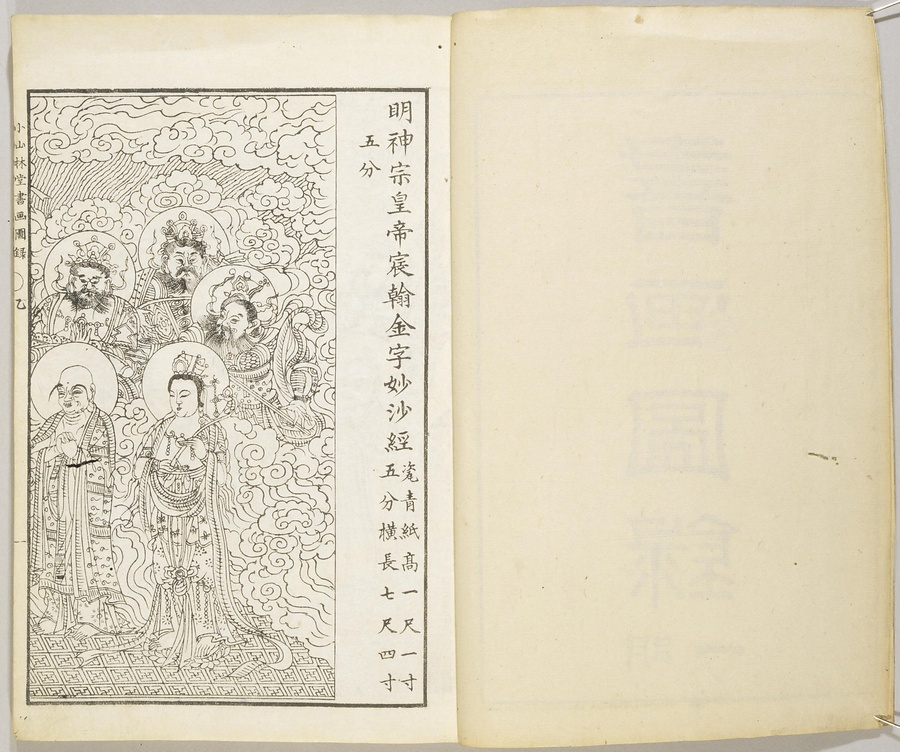 明神宗皇帝宸翰金字妙沙經
瓷青紙髙一尺一寸
五分橫長七尺四寸
五分
小山林堂書画圖録
乙